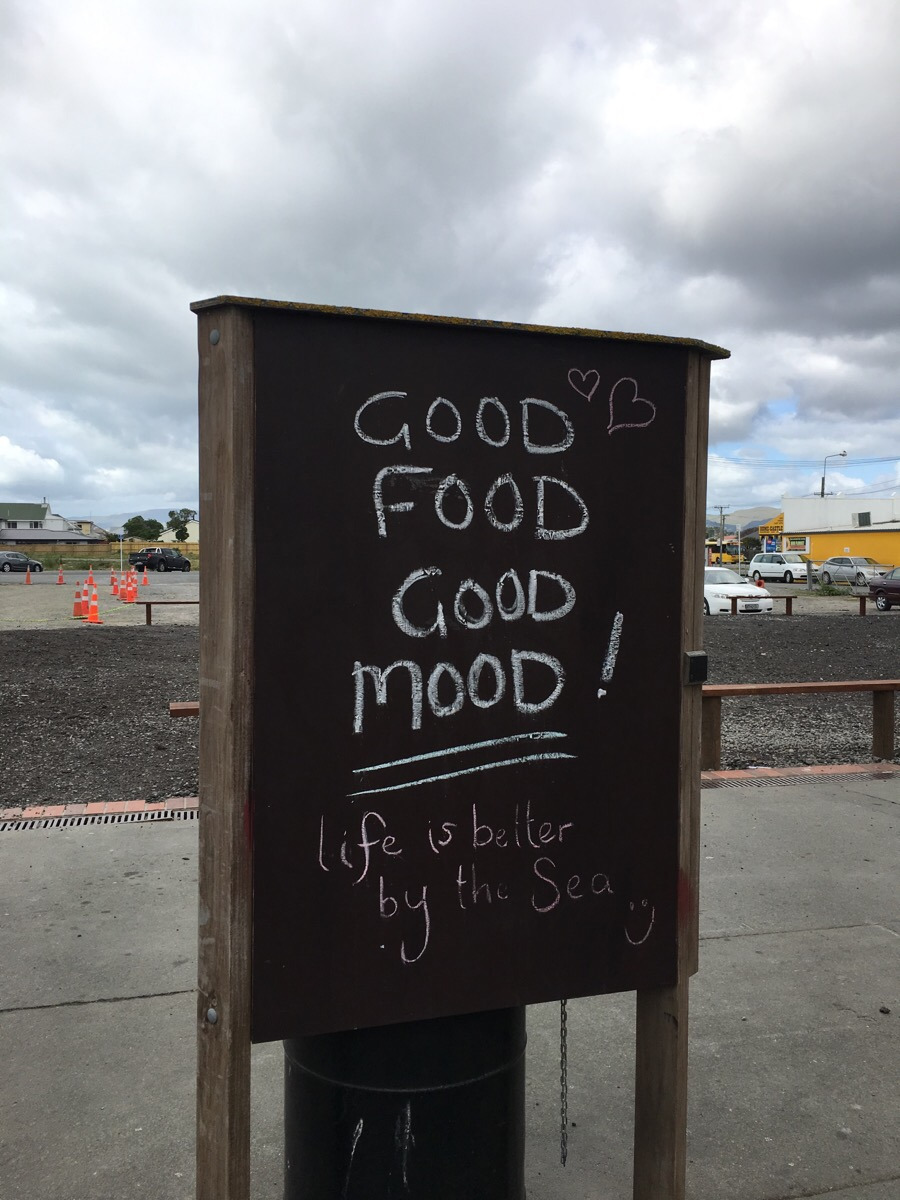 GOOD
FOOD
GOOD
MOOD!
life is better
by the Sea